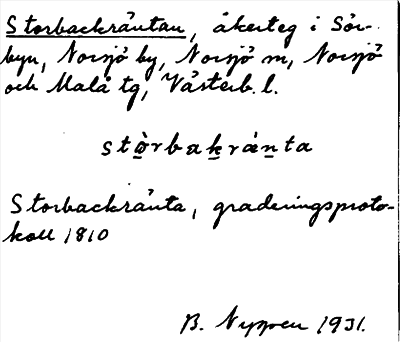 Storbackräntan, åkerteg i Sör-
byn, Norsjö by, Norsjö sn, Norsjö
och Malå tg, Västerb. l.
stò̱rbaḵráṉta
Storbackränta, graderingsproto-
koll 1810
B. 1931.